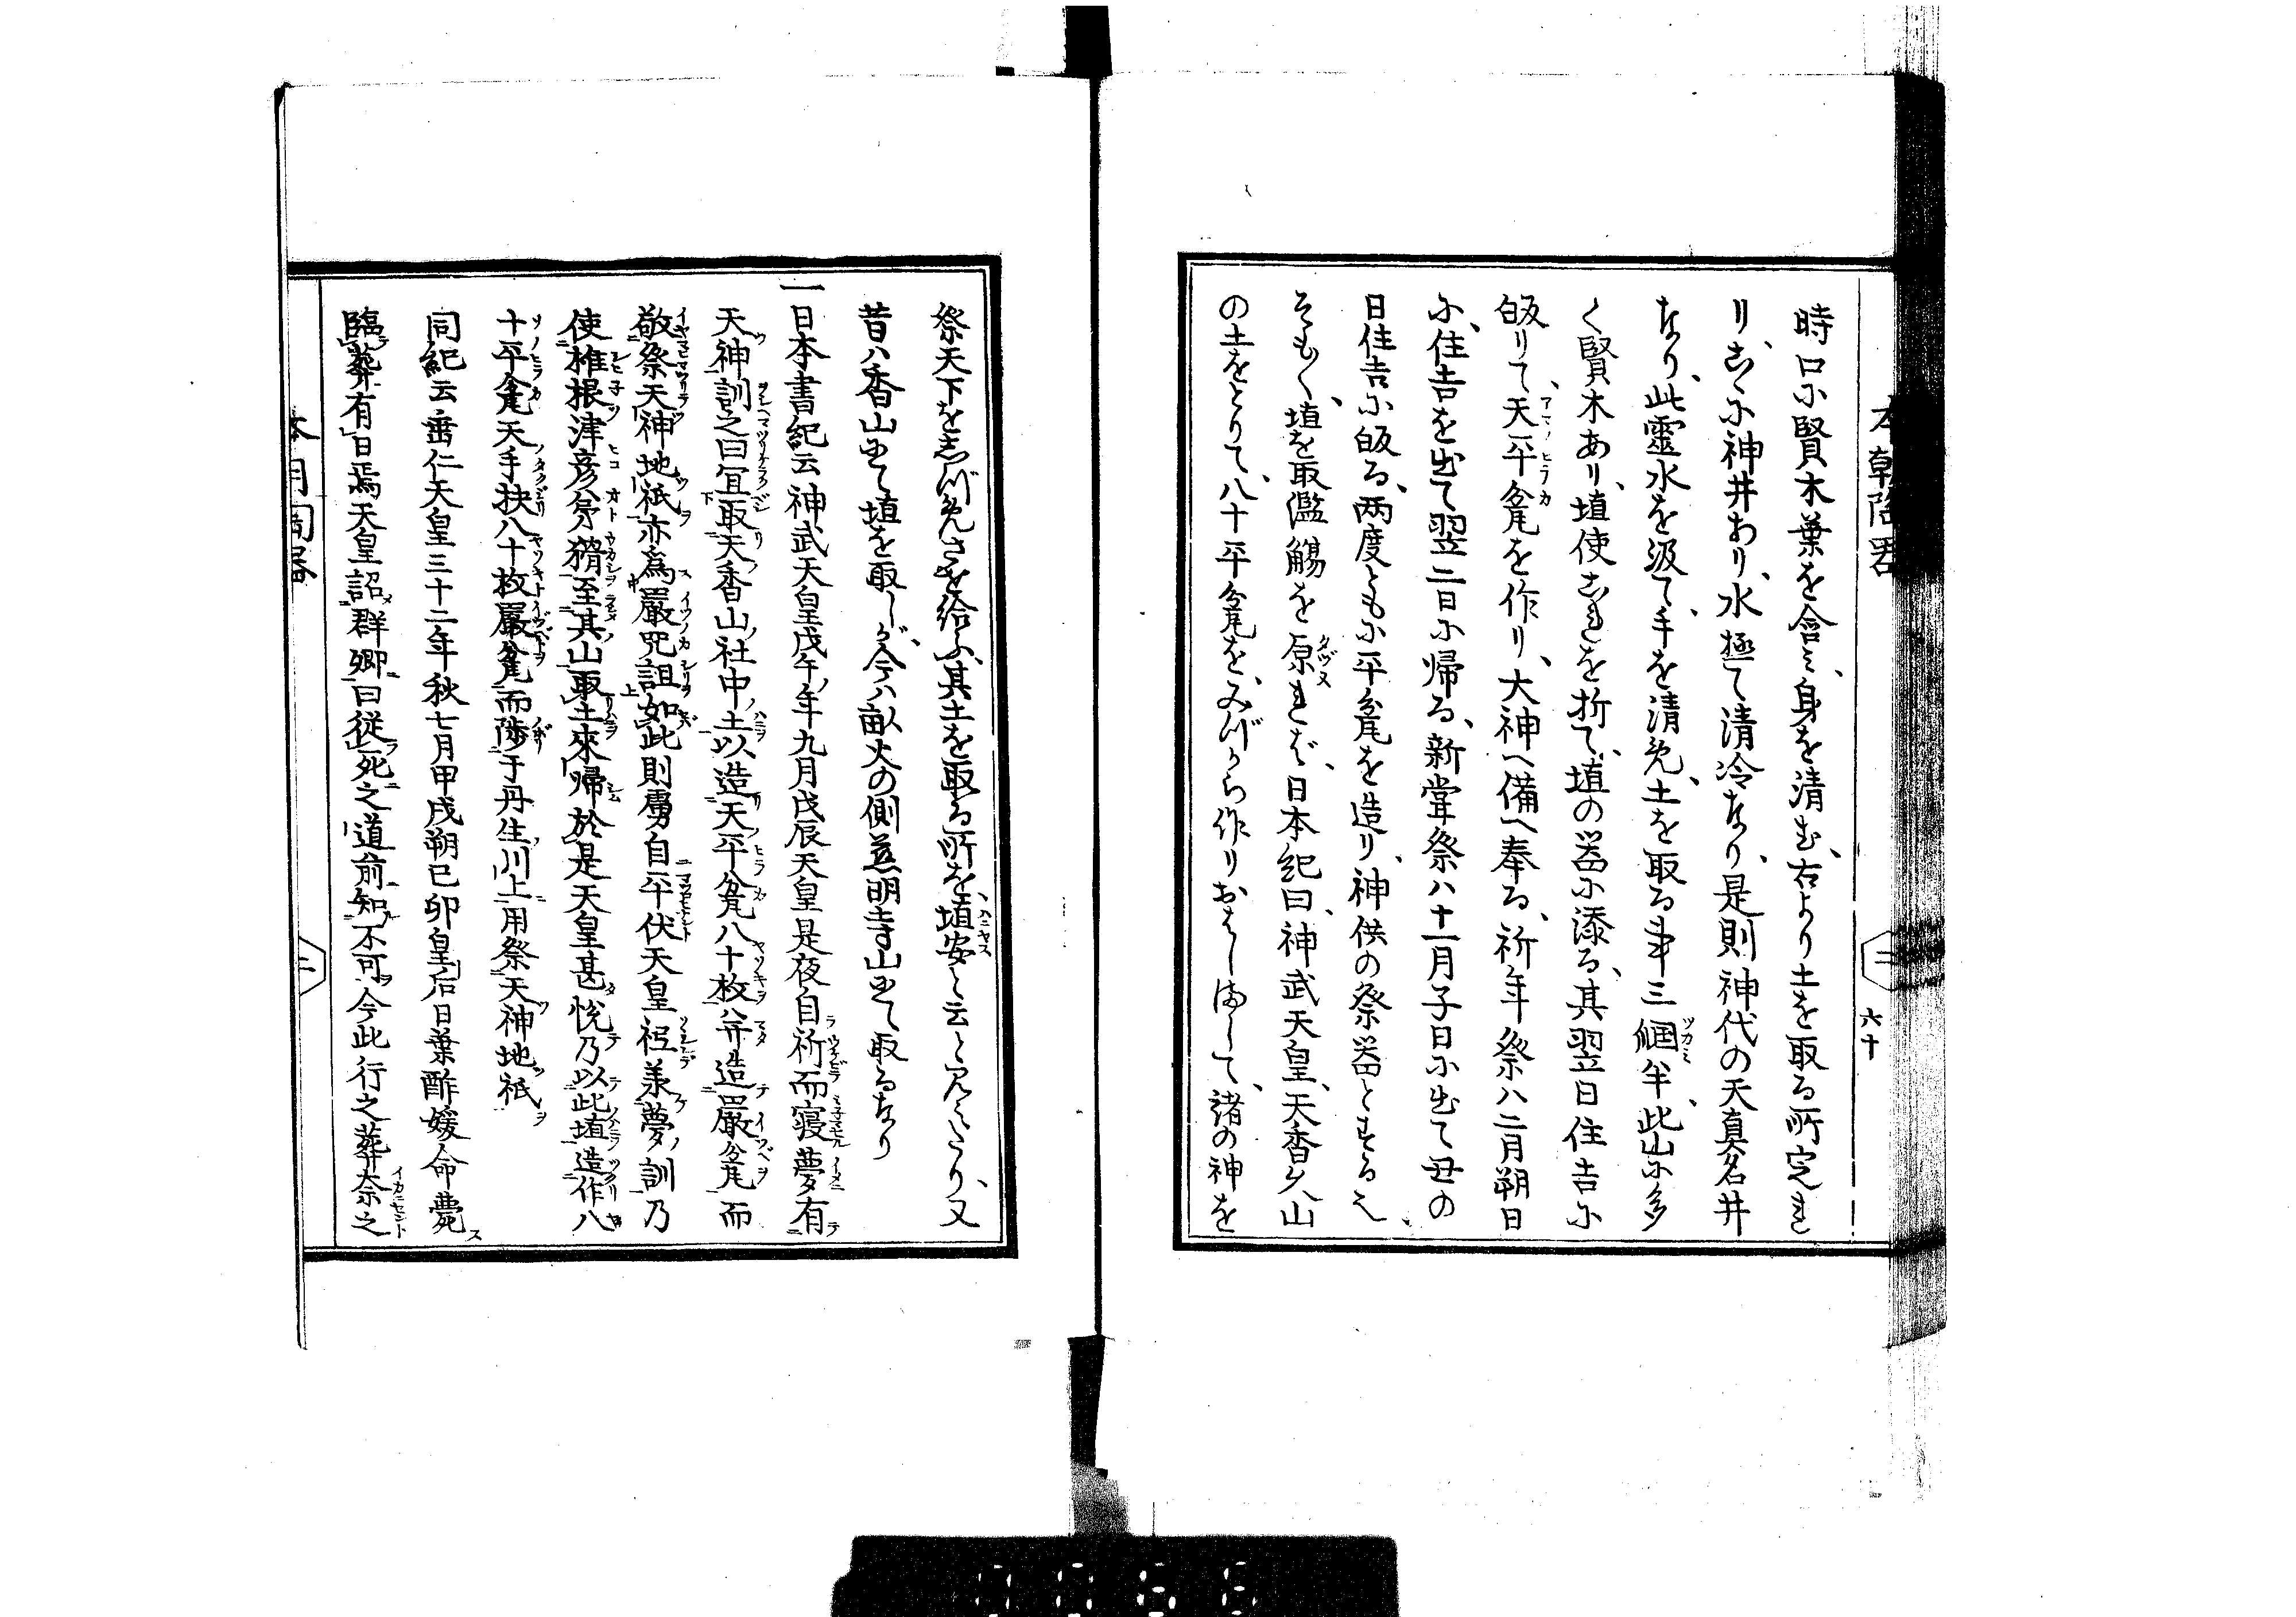 時口に賢木葉を含ミ、身を清む、右より土を取る所定れ
リ、こゝに神井あり、水極て清冷なり、是則神代の天真名井
なり、此靈水を汲て、手を清め、土を取る事三𢹂半、此山に多
く賢木あり、埴使これを折て、埴の器に添る、其翌日住吉に
皈りて、天平瓮を作り、大神へ備へ奉る、祈年祭ハ二月朔日
に、住吉を出て翌二日に帰る、新嘗祭ハ十一月子日に出て丑の
日住吉に皈る、両度ともに平瓮を造り、神供の祭器とする也、
そも〳〵、埴を取濫觴を原れば、日本紀曰、神武天皇、天香久山
の土をとりて、八十平瓮を、みづから作りおはしまして、諸の神を
祭天下をしづめさせ給ふ、其土を取る所を、埴安と云と見えたり、又
昔ハ香山にて埴を取しが、今ハ畝火の側慈明寺山にて取るなり
一日本書紀云神武天皇戊午年九月戊辰天皇是夜自祈而寝夢有
天神訓之曰宜取天香山社中土以造天平瓮八十枚并造嚴瓮而
敬祭天神地祇亦為嚴咒詛如此則虜自平伏天皇祗羕夢訓乃
使椎根津彦弟猾至其山取土來歸於是天皇甚悦乃以此埴造作八
十平瓮天手抉八十枚嚴瓮而陟于丹生川上用祭天神地祇
同紀云垂仁天皇三十二年秋七月甲戌朔己卯皇后日葉酢媛命薨
臨葬有日焉天皇詔群卿曰從死之道前知不可今此行之葬奈之
六十
二